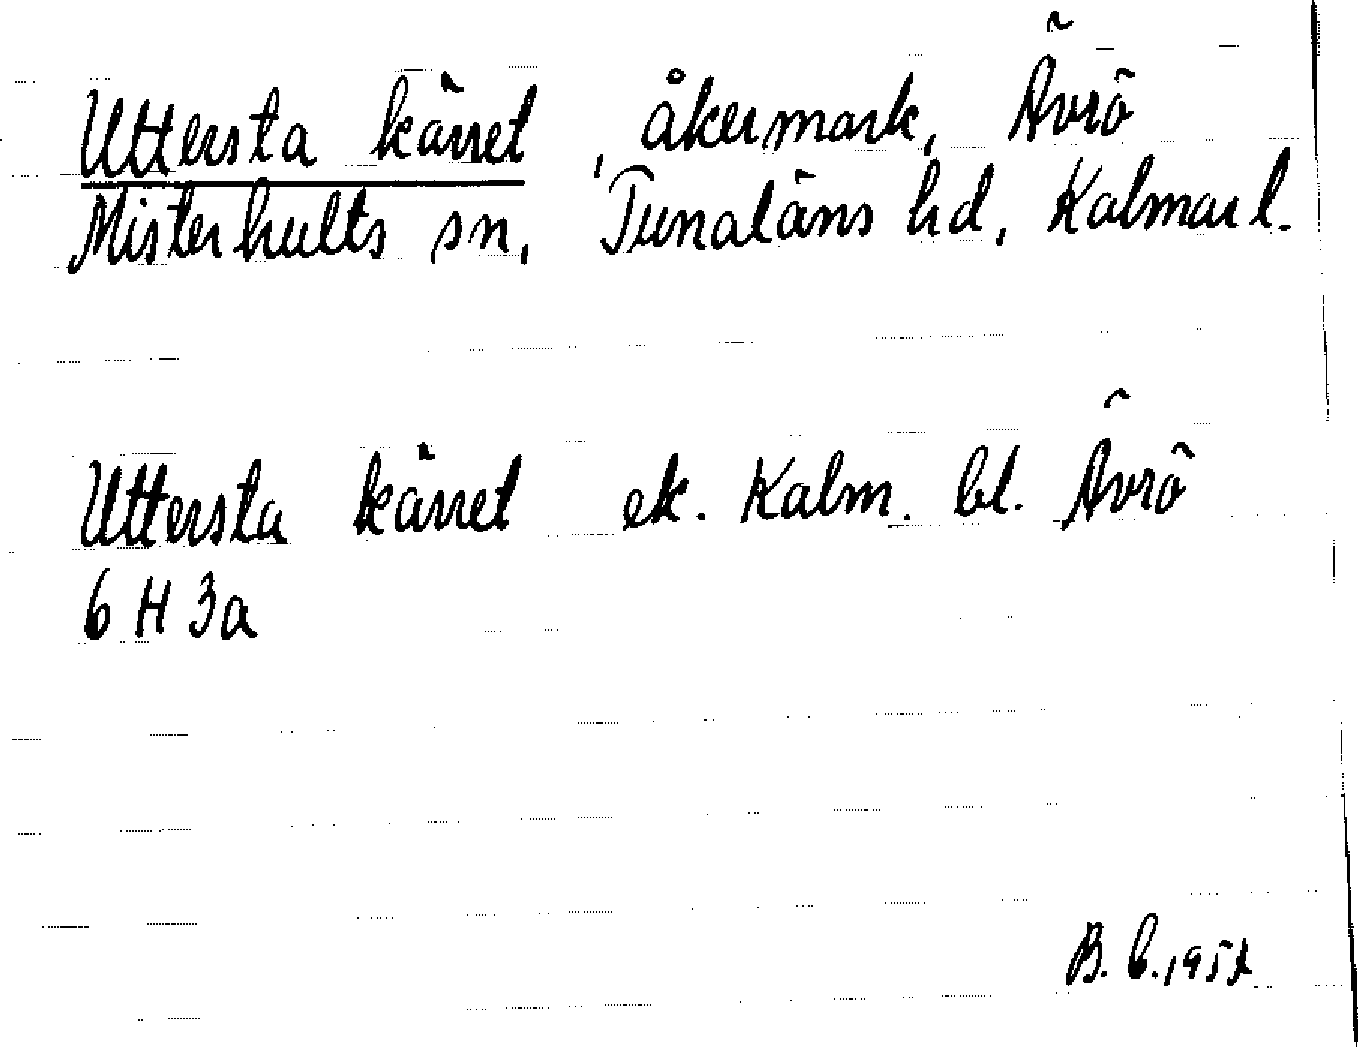 Uttersta kärret, åkermark, Ävrö
Misterhults sn, Tunaläns hd, Kalmar l.
Uttersta kärret ek. Kalm. bl. Ävrö
6 H 3a
B. C. 1952